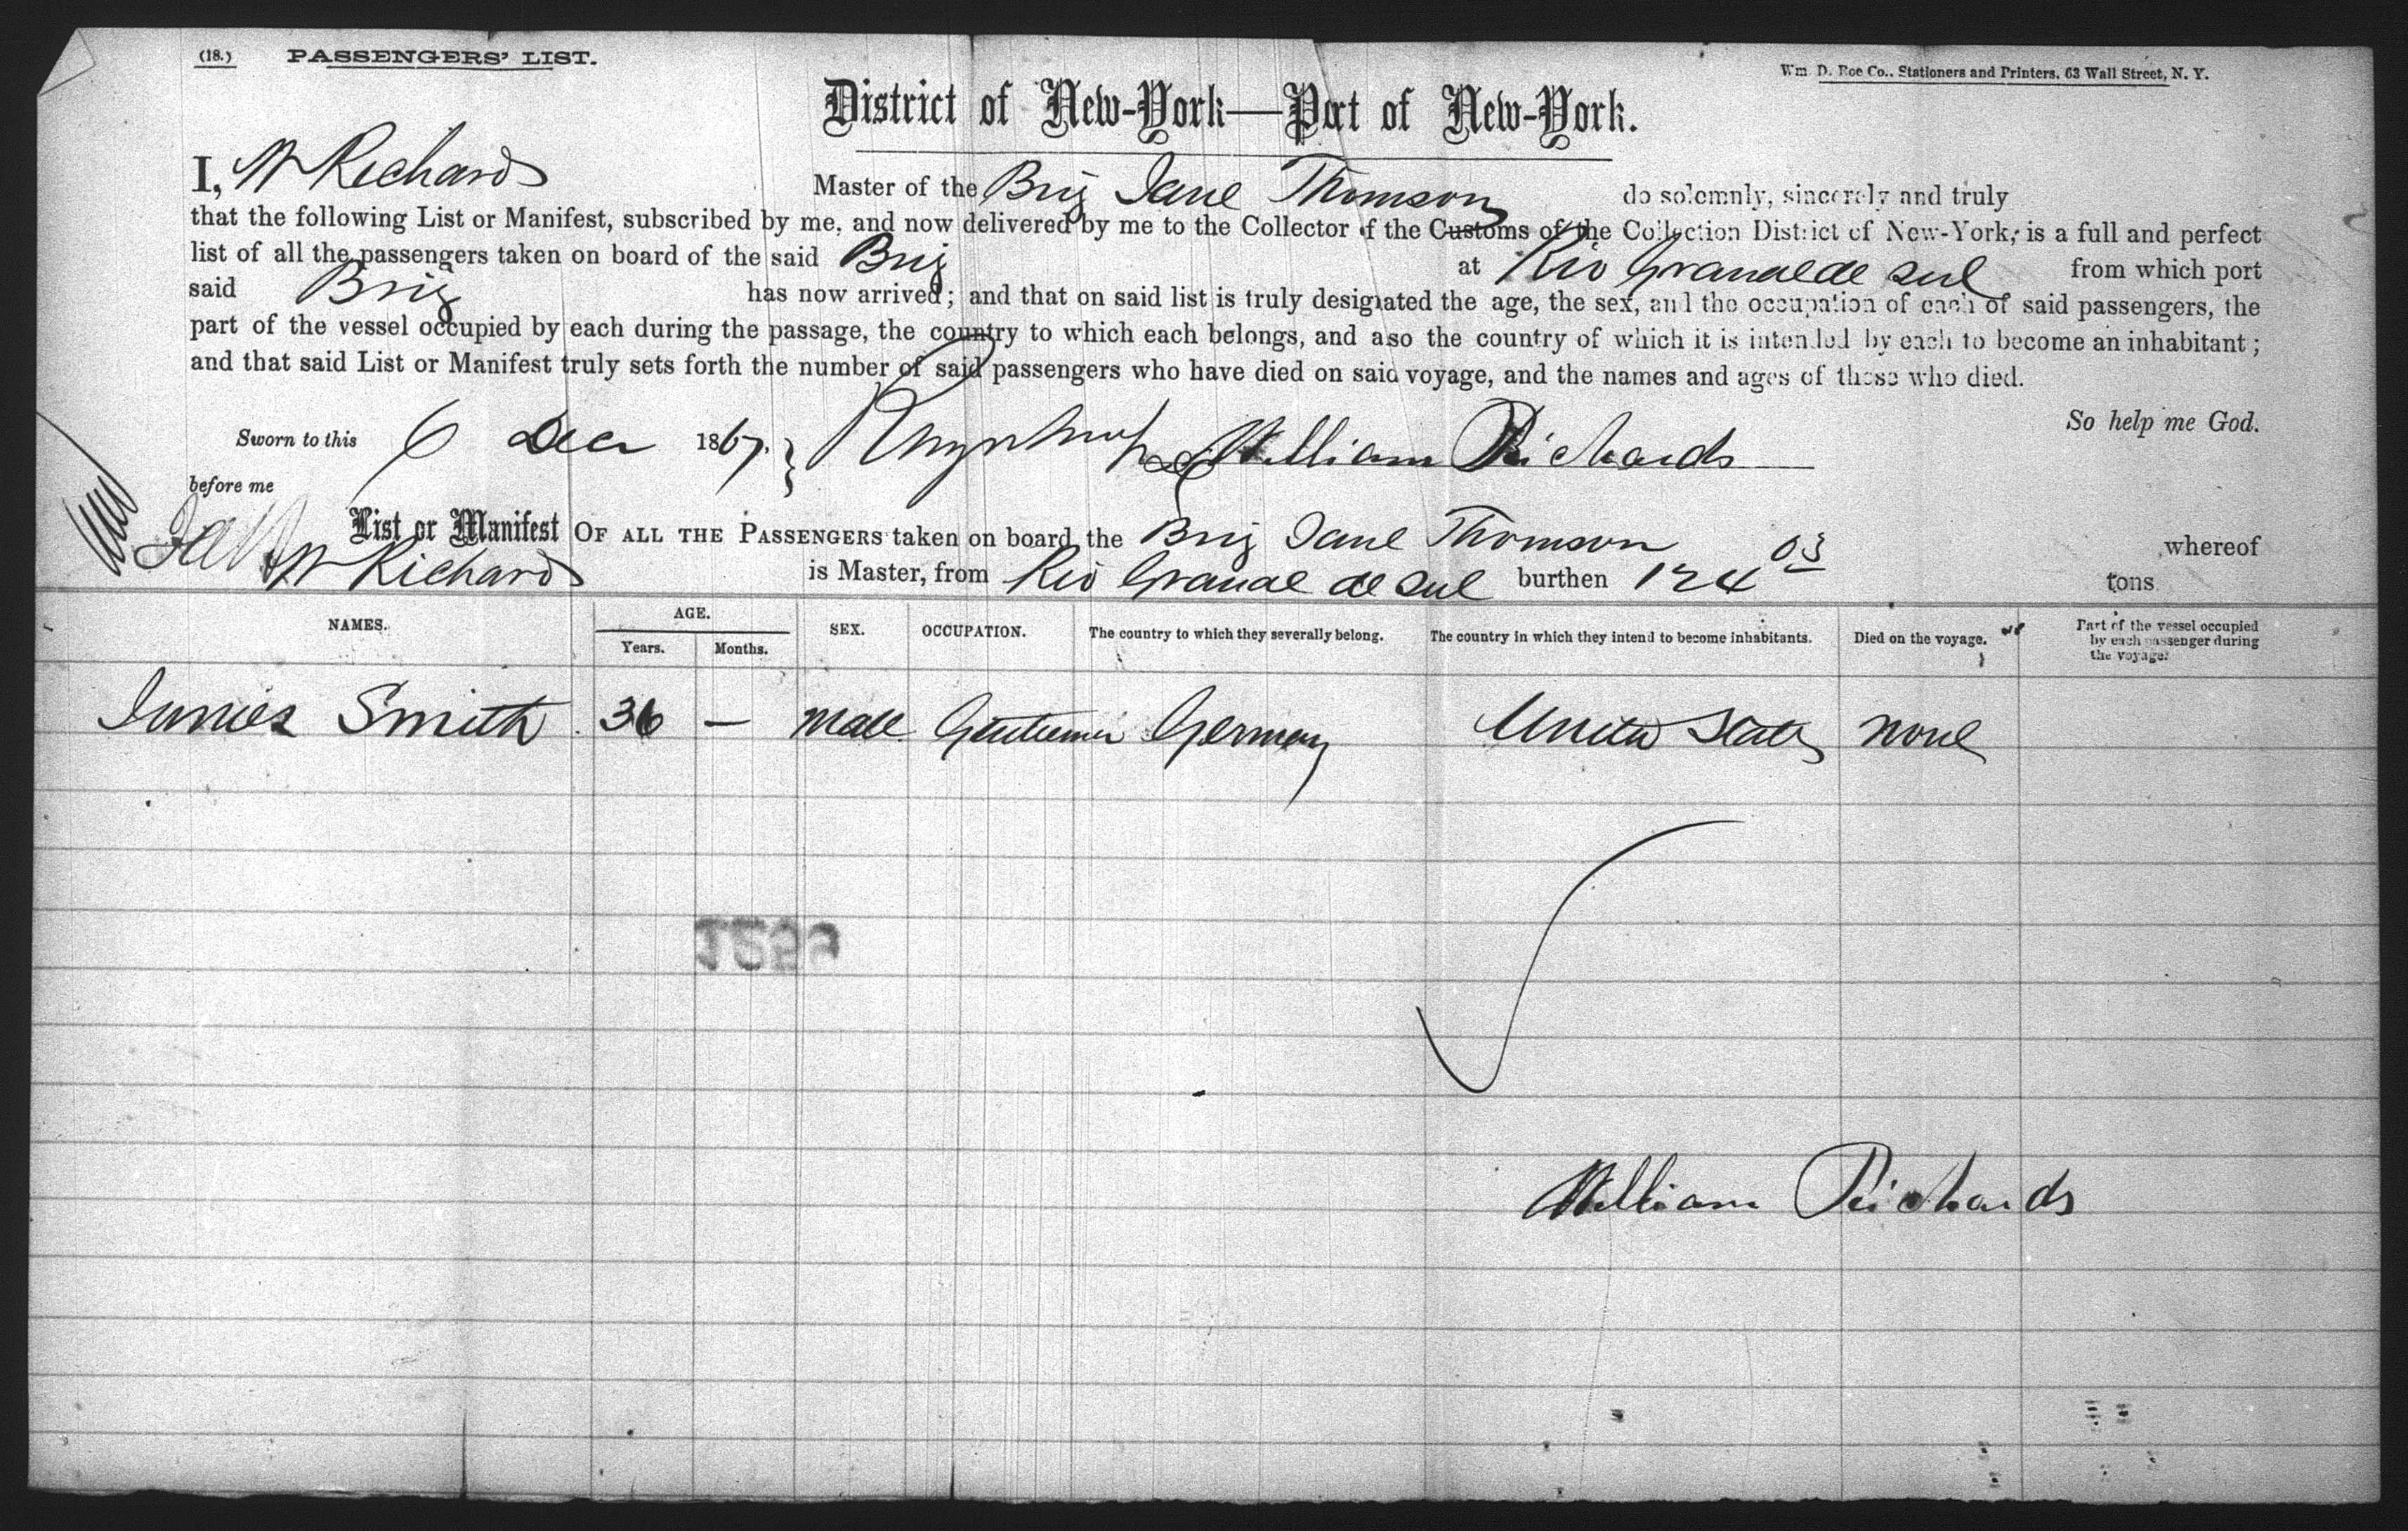 (18.) PASSENGERS' LIST.
Wm. D. Roe Co., Stationers and Printers, 63 Wall Street, N. Y.
District of New-York—Port of New-York.
I, W Richards Master of the Brig Jane Thomson do solemnly, sincerely and truly
that the following List or Manifest, subscribed by me, and now delivered by me to the Collector of the Customs of the Collection District of New-York, is a full and perfect
list of all the passengers taken on board of the said Brig at Rio Grande de Sul from which port
said Brig has now arrived; and that on said list is truly designated the age, the sex, and the occupation of each of said passengers, the
part of the vessel occupied by each during the passage, the country to which each belongs, and aso the country of which it is intended by each to become an inhabitant;
and that said List or Manifest truly sets forth the number of said passengers who have died on said voyage, and the names and ages of those who died.
So help me God.
Sworn to this 6 Dec 1867. William Richards
before me
List or Manifest OF ALL THE PASSENGERS taken on board the Brig Jane Thomson whereof
W Richards is Master, from Rio Grande de Sul burthen 124 03 tons
NAMES. AGE. Years. Months. SEX. OCCUPATION. The country to which they severally belong. The country in which they intend to become inhabitants. Died on the voyage. Part of the vessel occupied by each passenger during the voyage.
James Smith 36 — Male Gentleman Germany United States None
William Richards